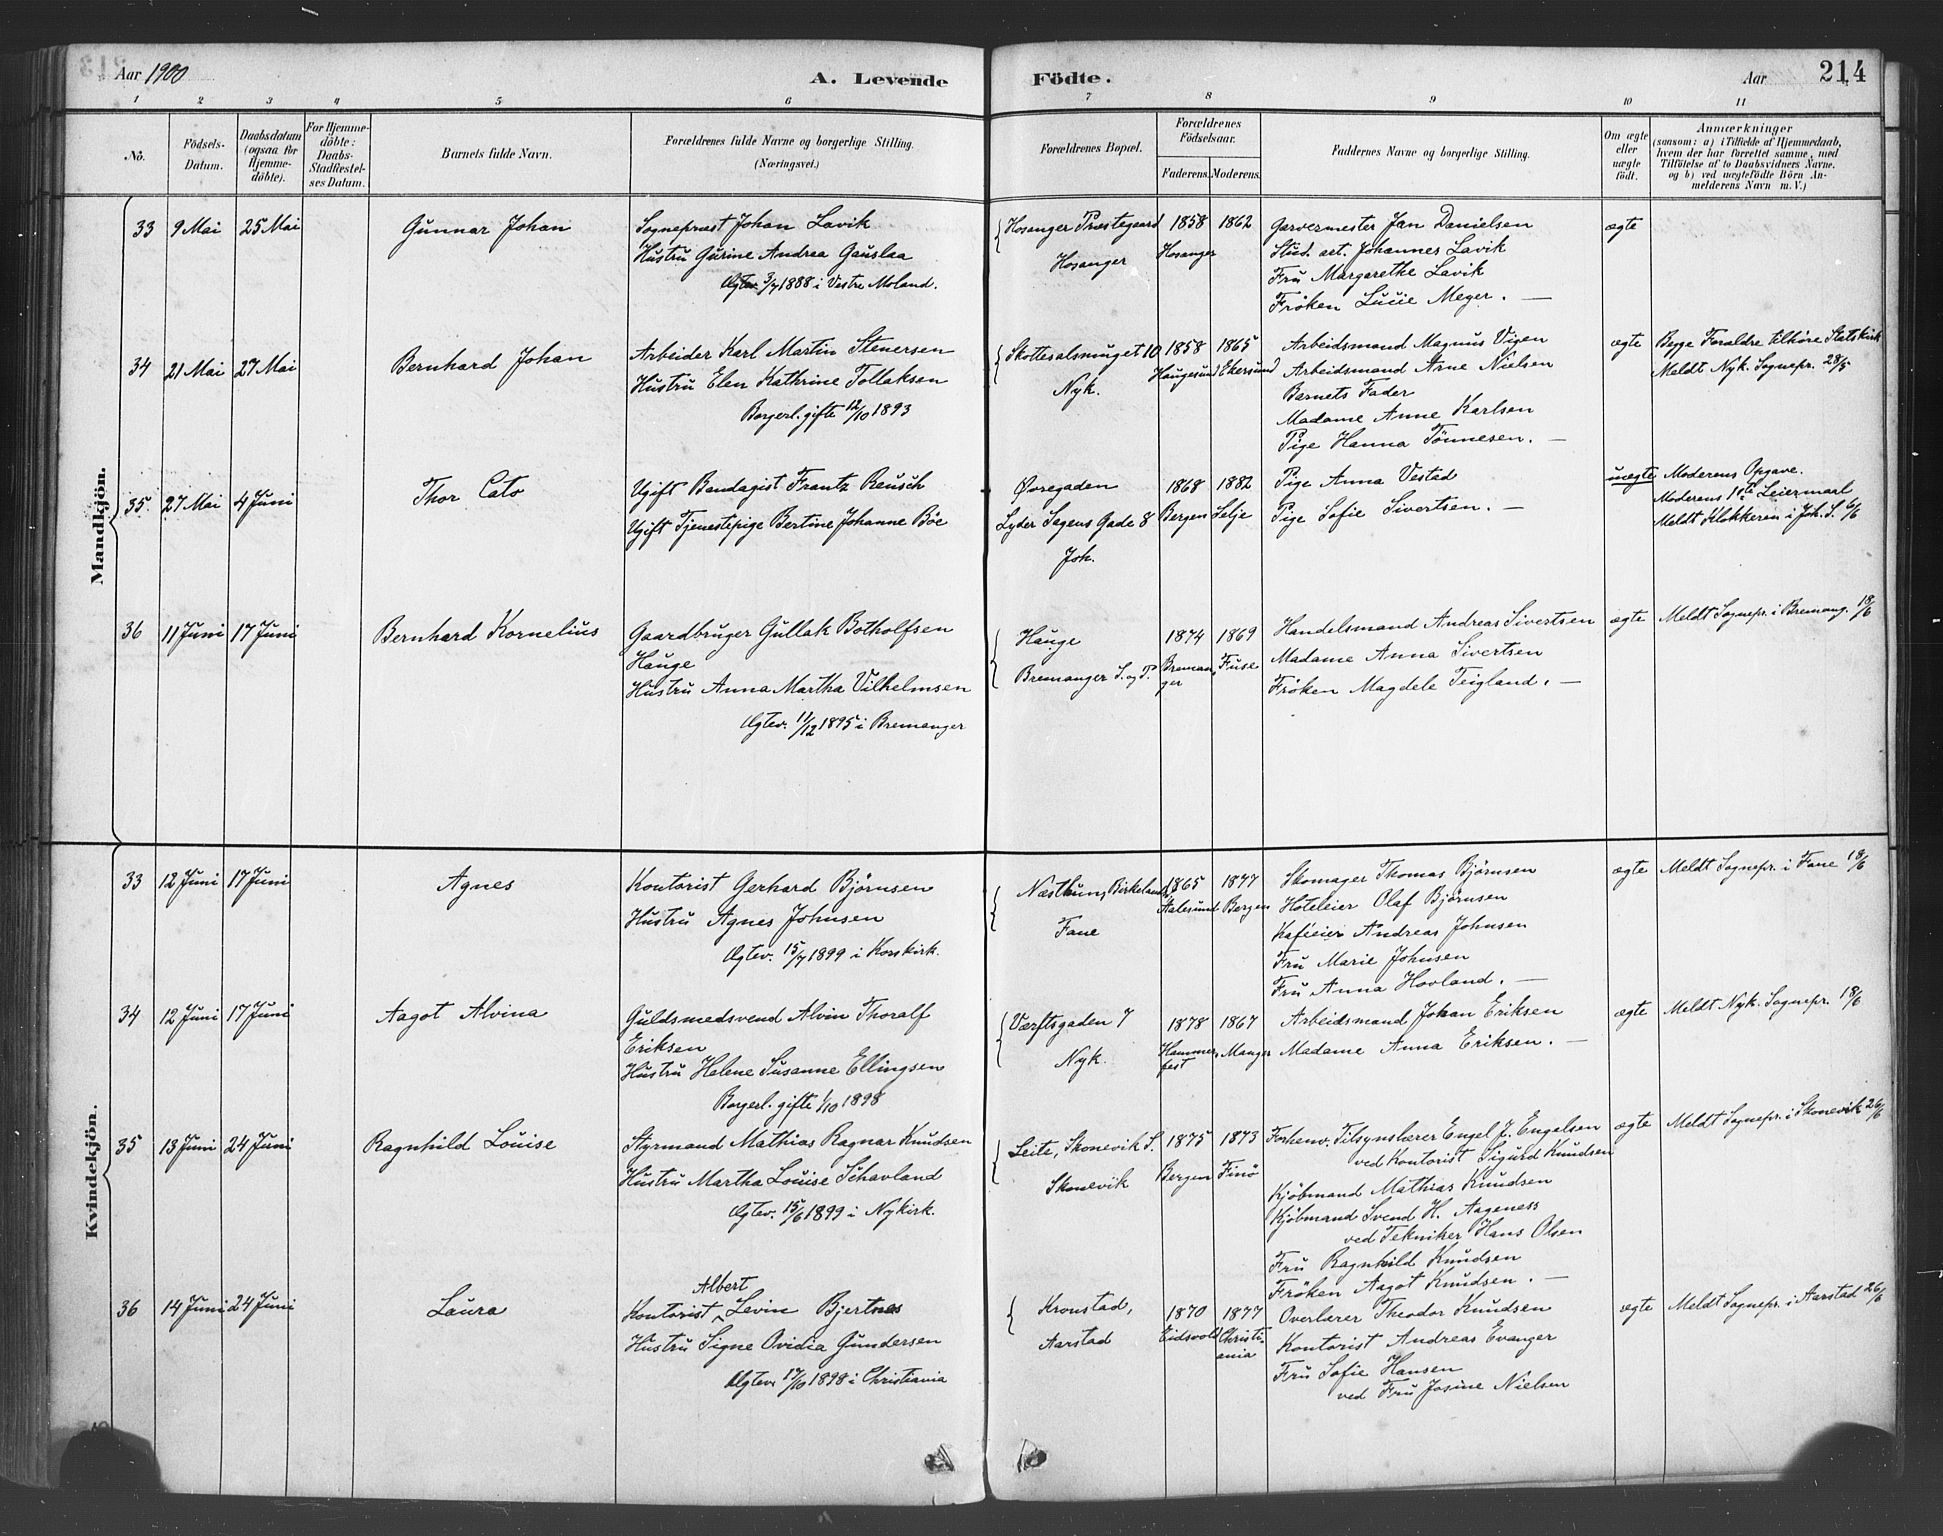 Aar 1900
A. Levende Födte.
Aar
214
1 2 3 4 5 6 7 8 9 10 11
No.
Födsels-Datum.
Daabsdatum (ogsaa for Hjemme-döbte).
For Hjemme-döbte: Daabs-Stadfæstel-ses Datum.
Barnets fulde Navn.
Forældrenes fulde Navne og borgerlige Stilling.
(Næringsvei.)
Forældrenes Bopæl.
Forældrenes Födselsaar.
Faderens. Moderens.
Faddernes Navne og borgerlig Stilling.
Om ægte eller uægte födt.
Anmærkninger
(saasom: a) i Tilfælde af Hjemmedaab,
hvem der har forrettet samme, med
Tilföielse af to Daabsvidners Navne,
og b) ved uægtefödte Börn An-
melderens Navn m. V.)
Mandkjön.
33 9 Mai 25 Mai
Gunnar Johan
Sogneprest Johan Lavik
Hustru Gurine Andrea Gauslaa
Ægtev. 3/7 1888 i Vestre Moland.
Hosanger Præstegaard
Hosanger
1858 1862
Hosanger
Garvermester Jan Danielsen
Stud. art. Johannes Lavik
Fru Margarethe Lavik
Frøken Lucie Meyer. —
ægte
34 21 Mai 27 Mai
Bernhard Johan
Arbeider Karl Martin Stenersen
Hustru Elen Kathrine Tollaksen
Borgerl. gifte 12/10 1893
Skottesalsmuget 10
Nyk.
1858 1865
Haugesund Ekersund
Arbeidsmand Magnus Vigen
Arbeidsmand Arne Nielsen
Barnets Fader
Madame Anne Karlsen
Pige Hanna Tönnesen. —
ægte
Begge Foraldre tilhöre Statskirk
Meldt Nyk. Sognepr. 28/5
35. 27 Mai 4 Juni
Thor Cato
Ugift Bandagist Frantz Reusch
Ugift Tjenestepige Bertine Johanne Böe
Øvregaden
Lyder Sagens Gade 8
Joh.
1868 1882
Bergen Selje
Pige Anna Vestad
Pige Sofie Sivertsen. —
uægte
Moderens Opgave.
Moderens 1ste Leiermaal
Meldt Klokkeren i Joh. S. 6/6
36 11 Juni 17 Juni
Bernhard Kornelius
Gaardbruger Gullak Botholfsen
Hauge
Hustru Anna Martha Vilhelmsen
Ægtev. 11/12 1895 i Bremanger
Hauge
Bremanger S. og P.
1874 1869
Breman-
ger
Fuse
Handelsmand Andreas Sivertsen
Madame Anna Sivertsen
Frøken Magdele Teigland. —
ægte
Meldt Sognepr. i Bremang. 18/6
Kvindekjön.
33 12 Juni 17 Juni
Agnes
Kontorist Gerhard Björnsen
Hustru Agnes Johnsen
Ægtev. 15/7 1899 i Korskirk.
Næsttun, Birkeland S.
Fane
1865 1877
Aalesund Bergen
Skomager Thomas Björnsen
Hoteleier Olaf Björnsen
Kaféeier Andreas Johnsen
Fru Marie Johnsen
Fru Anna Hovland. —
ægte
Meldt Sognepr. i Fane 18/6
34 12 Juni 17 Juni
Aagot Alvina
Guldsmedsvend Alvin Thoralf
Eriksen
Hustru Helene Susanne Ellingsen
Borgerl. gifte 1/10 1898
Værftsgaden 7
Nyk.
1878 1867
Hammer-
fest
Manger
Arbeidsmand Johan Eriksen
Madame Anna Eriksen. —
ægte
Meldt Nyk. Sognepr. 18/6
35 13 Juni 24 Juni
Ragnhild Louise
Styrmand Mathias Ragnar Knudsen
Hustru Martha Louise Schavland
Ægtev. 15/6 1899 i Nykirk.
Leite, Skonevik S.
Skonevik
1875 1873
Bergen Finö
Forhenv. Tilsynslærer Engel J. Engelsen
ved Kontorist Sigurd Knudsen
Kjöbmand Mathias Knudsen
Kjöbmand Svend H. Aageness
ved Tekniker Hans Olsen
Fru Ragnhild Knudsen
Frøken Aagot Knudsen. —
ægte
Meldt Sognepr. i Skonevik 26/6
36 14 Juni 24 Juni
Laura
Albert
Kontorist Levin Bjertnes
Hustru Signe Ovidia Gundersen
Ægtev. 17/10 1898 i Christiania
Kronstad,
Aarstad
1870 1877
Eidsvold Christi-
ania
Overlærer Theodor Knudsen
Kontorist Andreas Evanger
Fru Sofie Hansen
ved Fru Josine Nielsen
ægte
Meldt Sognepr. i Aarstad 26/6